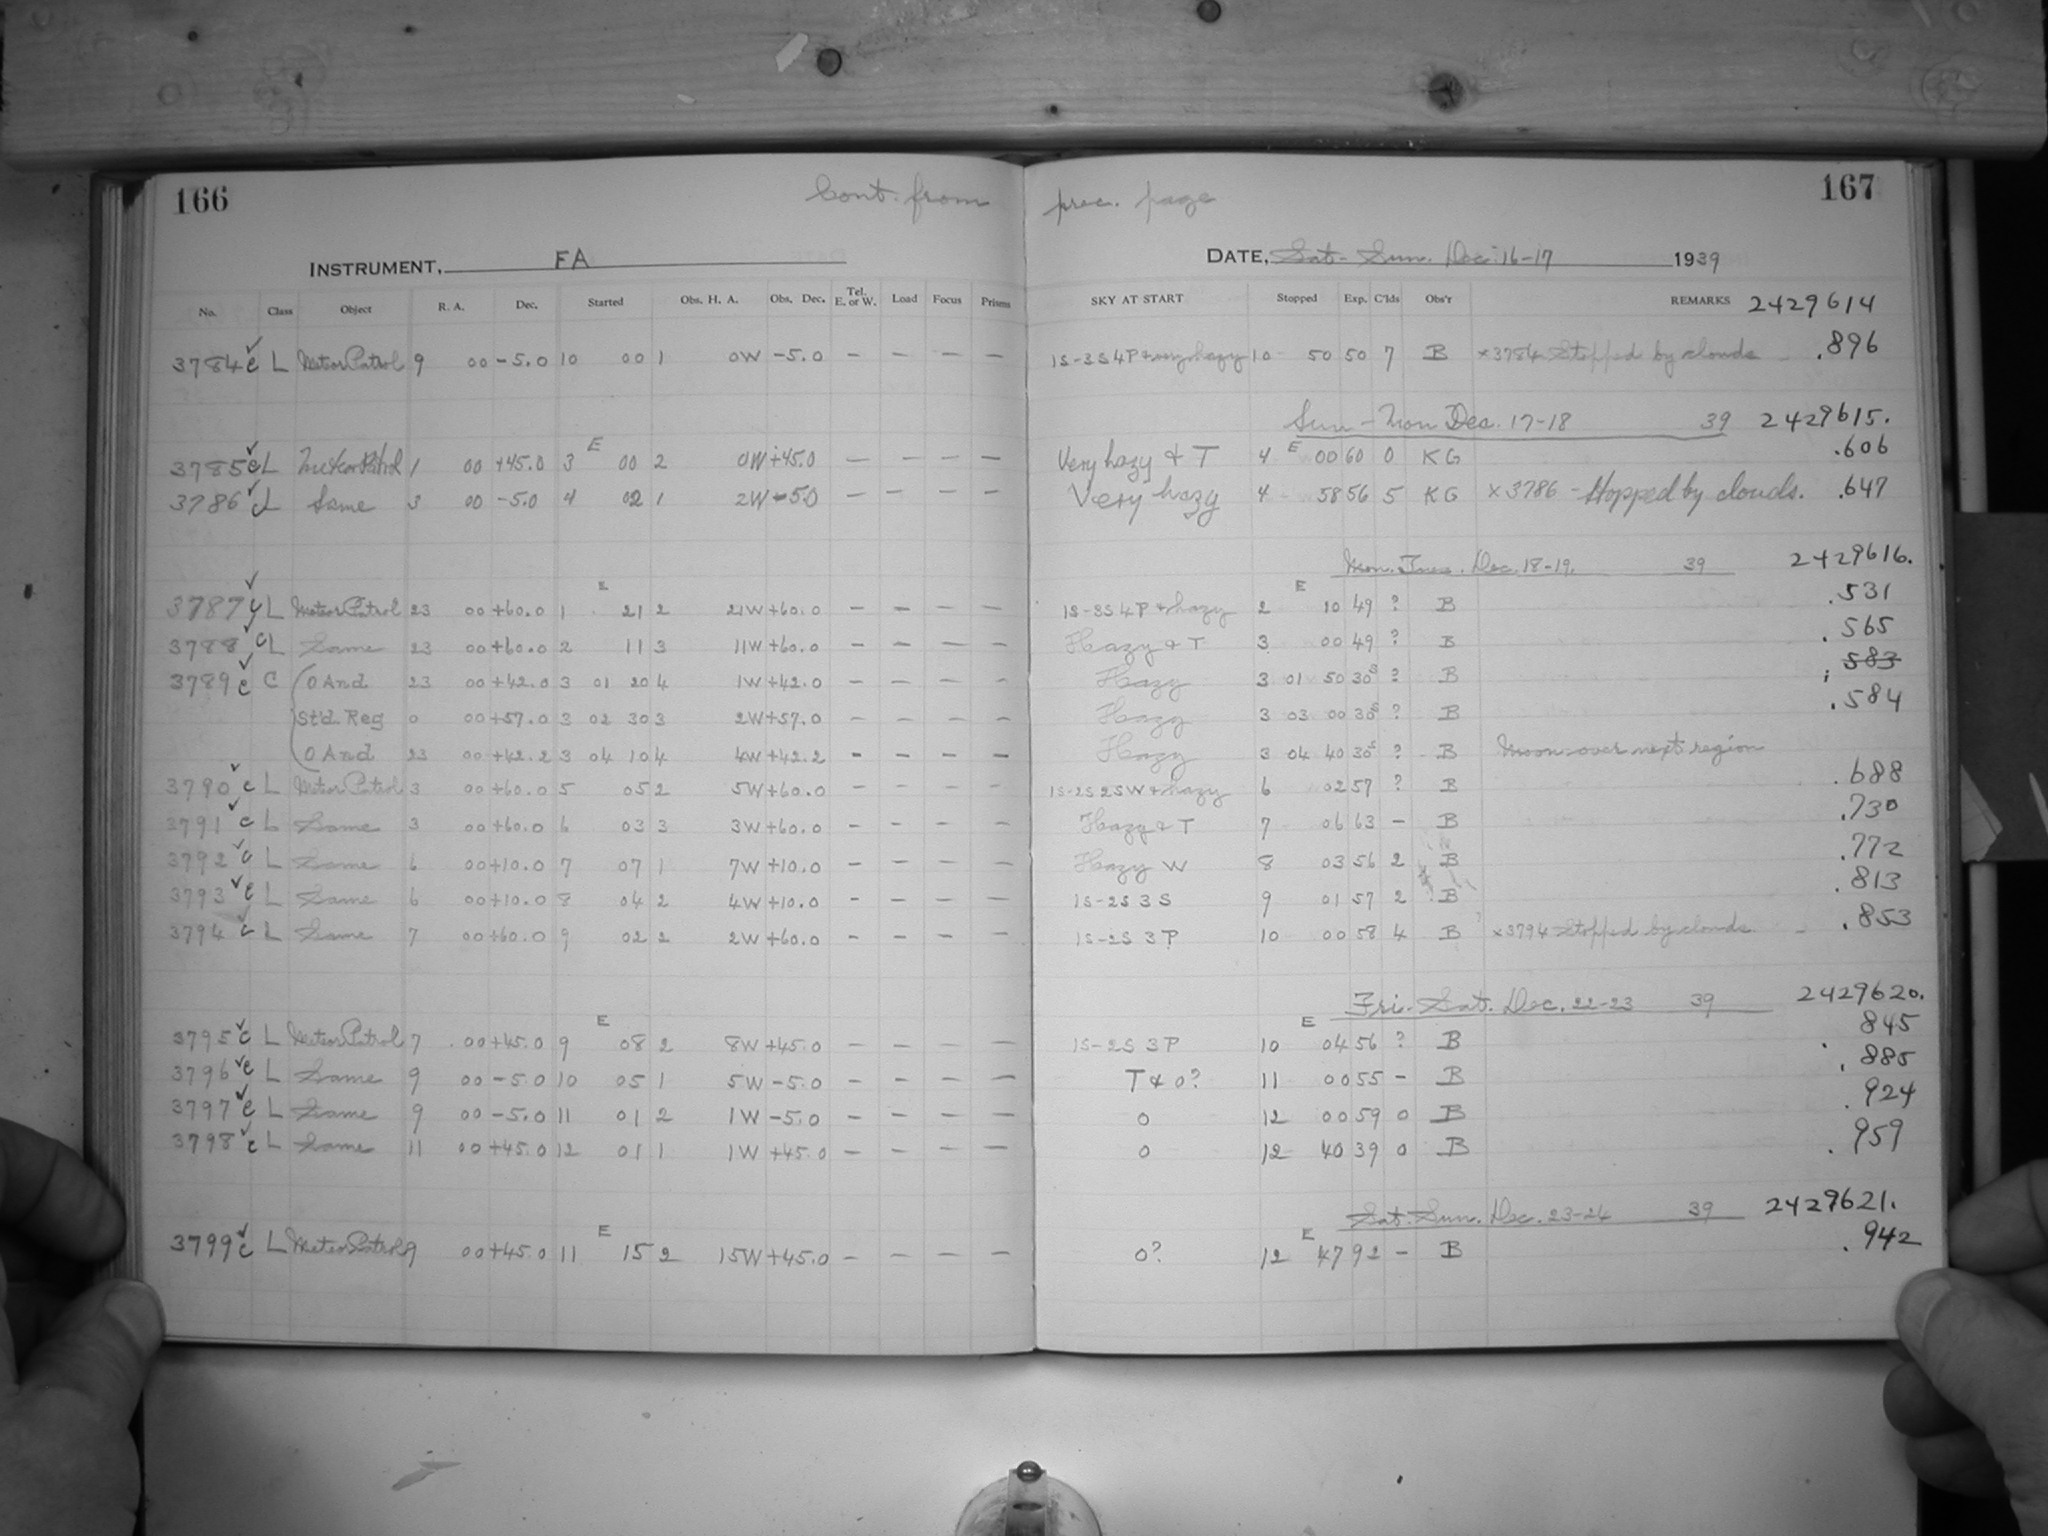 166 Cont. from prec. page 167
INSTRUMENT, FA DATE, Sat-Sun. Dec. 16-17 1939
No. Class Object R. A. Dec. Started Obs. H. A. Obs. Dec. Tel. E. or W. Load Focus Prisms SKY AT START Stopped Exp. C'lds Obs'r REMARKS 2429614
3784 c L Meteor Patrol 9 00 -5.0 10 00 1 0W -5.0 - - - - 1S-3S4P+very hazy 10 50 50 7 B x3784 Stopped by clouds .896
Sun-Mon Dec. 17-18 39 2429615.
3785 c L Meteor Patrol 1 00 +45.0 3 E 00 2 0W +45.0 - - - - Very hazy & T 4 E 00 60 0 KG .606
3786 c L Same 3 00 -5.0 4 02 1 2W -5.0 - - - - Very hazy 4 58 56 5 KG x3786 - Stopped by clouds. .647
Mon. Tues. Dec. 18-19. 39 2429616.
3787 c L Meteor Patrol 23 00 +60.0 1 E 21 2 21W +60.0 - - - - 1S-3S4P+hazy 2 E 10 49 ? B .531
3788 c L Same 23 00 +60.0 2 11 3 11W +60.0 - - - - Hazy & T 3 00 49 ? B .565
3789 c C (O And 23 00 +42.0 3 01 20 4 1W +42.0 - - - - Hazy 3 01 50 30s ? B 583
Std. Reg 0 00 +57.0 3 02 30 3 2W +57.0 - - - - Hazy 3 03 00 30s ? B .584
O And 23 00 +42.2 3 04 10 4 4W +42.2 - - - - Hazy 3 04 40 30s ? B Moon over next region
3790 c L Meteor Patrol 3 00 +60.0 5 05 2 5W +60.0 - - - - 1S-2S2SW+hazy 6 02 57 ? B .688
3791 c L Same 3 00 +60.0 6 03 3 3W +60.0 - - - - Hazy & T 7 06 63 - B .730
3792 c L Same 6 00 +10.0 7 07 1 7W +10.0 - - - - Hazy W 8 03 56 2 B .772
3793 c L Same 6 00 +10.0 8 04 2 4W +10.0 - - - - 1S-2S 3S 9 01 57 2 B .813
3794 c L Same 7 00 +60.0 9 02 2 2W +60.0 - - - - 1S-2S 3P 10 00 58 4 B x3794 Stopped by clouds .853
Fri.-Sat. Dec. 22-23 39 2429620.
3795 c L Meteor Patrol 7 00 +45.0 9 E 08 2 8W +45.0 - - - - 1S-2S 3P 10 E 04 56 ? B .845
3796 c L Same 9 00 -5.0 10 05 1 5W -5.0 - - - - T & 0? 11 00 55 - B .885
3797 c L Same 9 00 -5.0 11 01 2 1W -5.0 - - - - 0 12 00 59 0 B .924
3798 c L Same 11 00 +45.0 12 01 1 1W +45.0 - - - - 0 12 40 39 0 B .959
Sat. Sun. Dec. 23-24 39 2429621.
3799 c L Meteor Patrol 9 00 +45.0 11 E 15 2 15W +45.0 - - - - 0? 12 E 47 92 - B .942